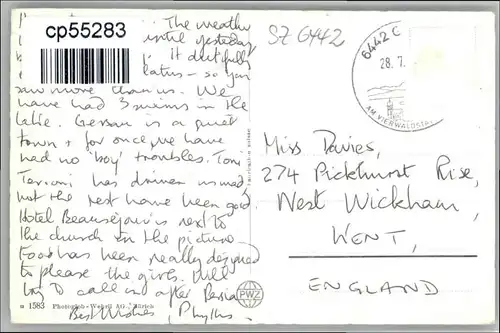 cp55283
The weather
until yesterday
it dutifully
- so you
saw more than us. We
have had 3 swims in the
lake. Gersau is a quiet
town & for once we have
had no 'boy' troubles. Toni
has driven us mad
but the rest have been good
Hotel Beauséjour is next to
the church in the picture
Food has been really designed
to please the girls. Will
try to call in after Persia
Best Wishes, Phyllis.
SZ 6442
6442 G
28.7.
AM VIERWALDSTÄ
Miss Davies,
274 Pickhurst Rise,
West Wickham,
KENT,
ENGLAND
1583 Photoglob-Wehrli AG., Zürich
PWZ